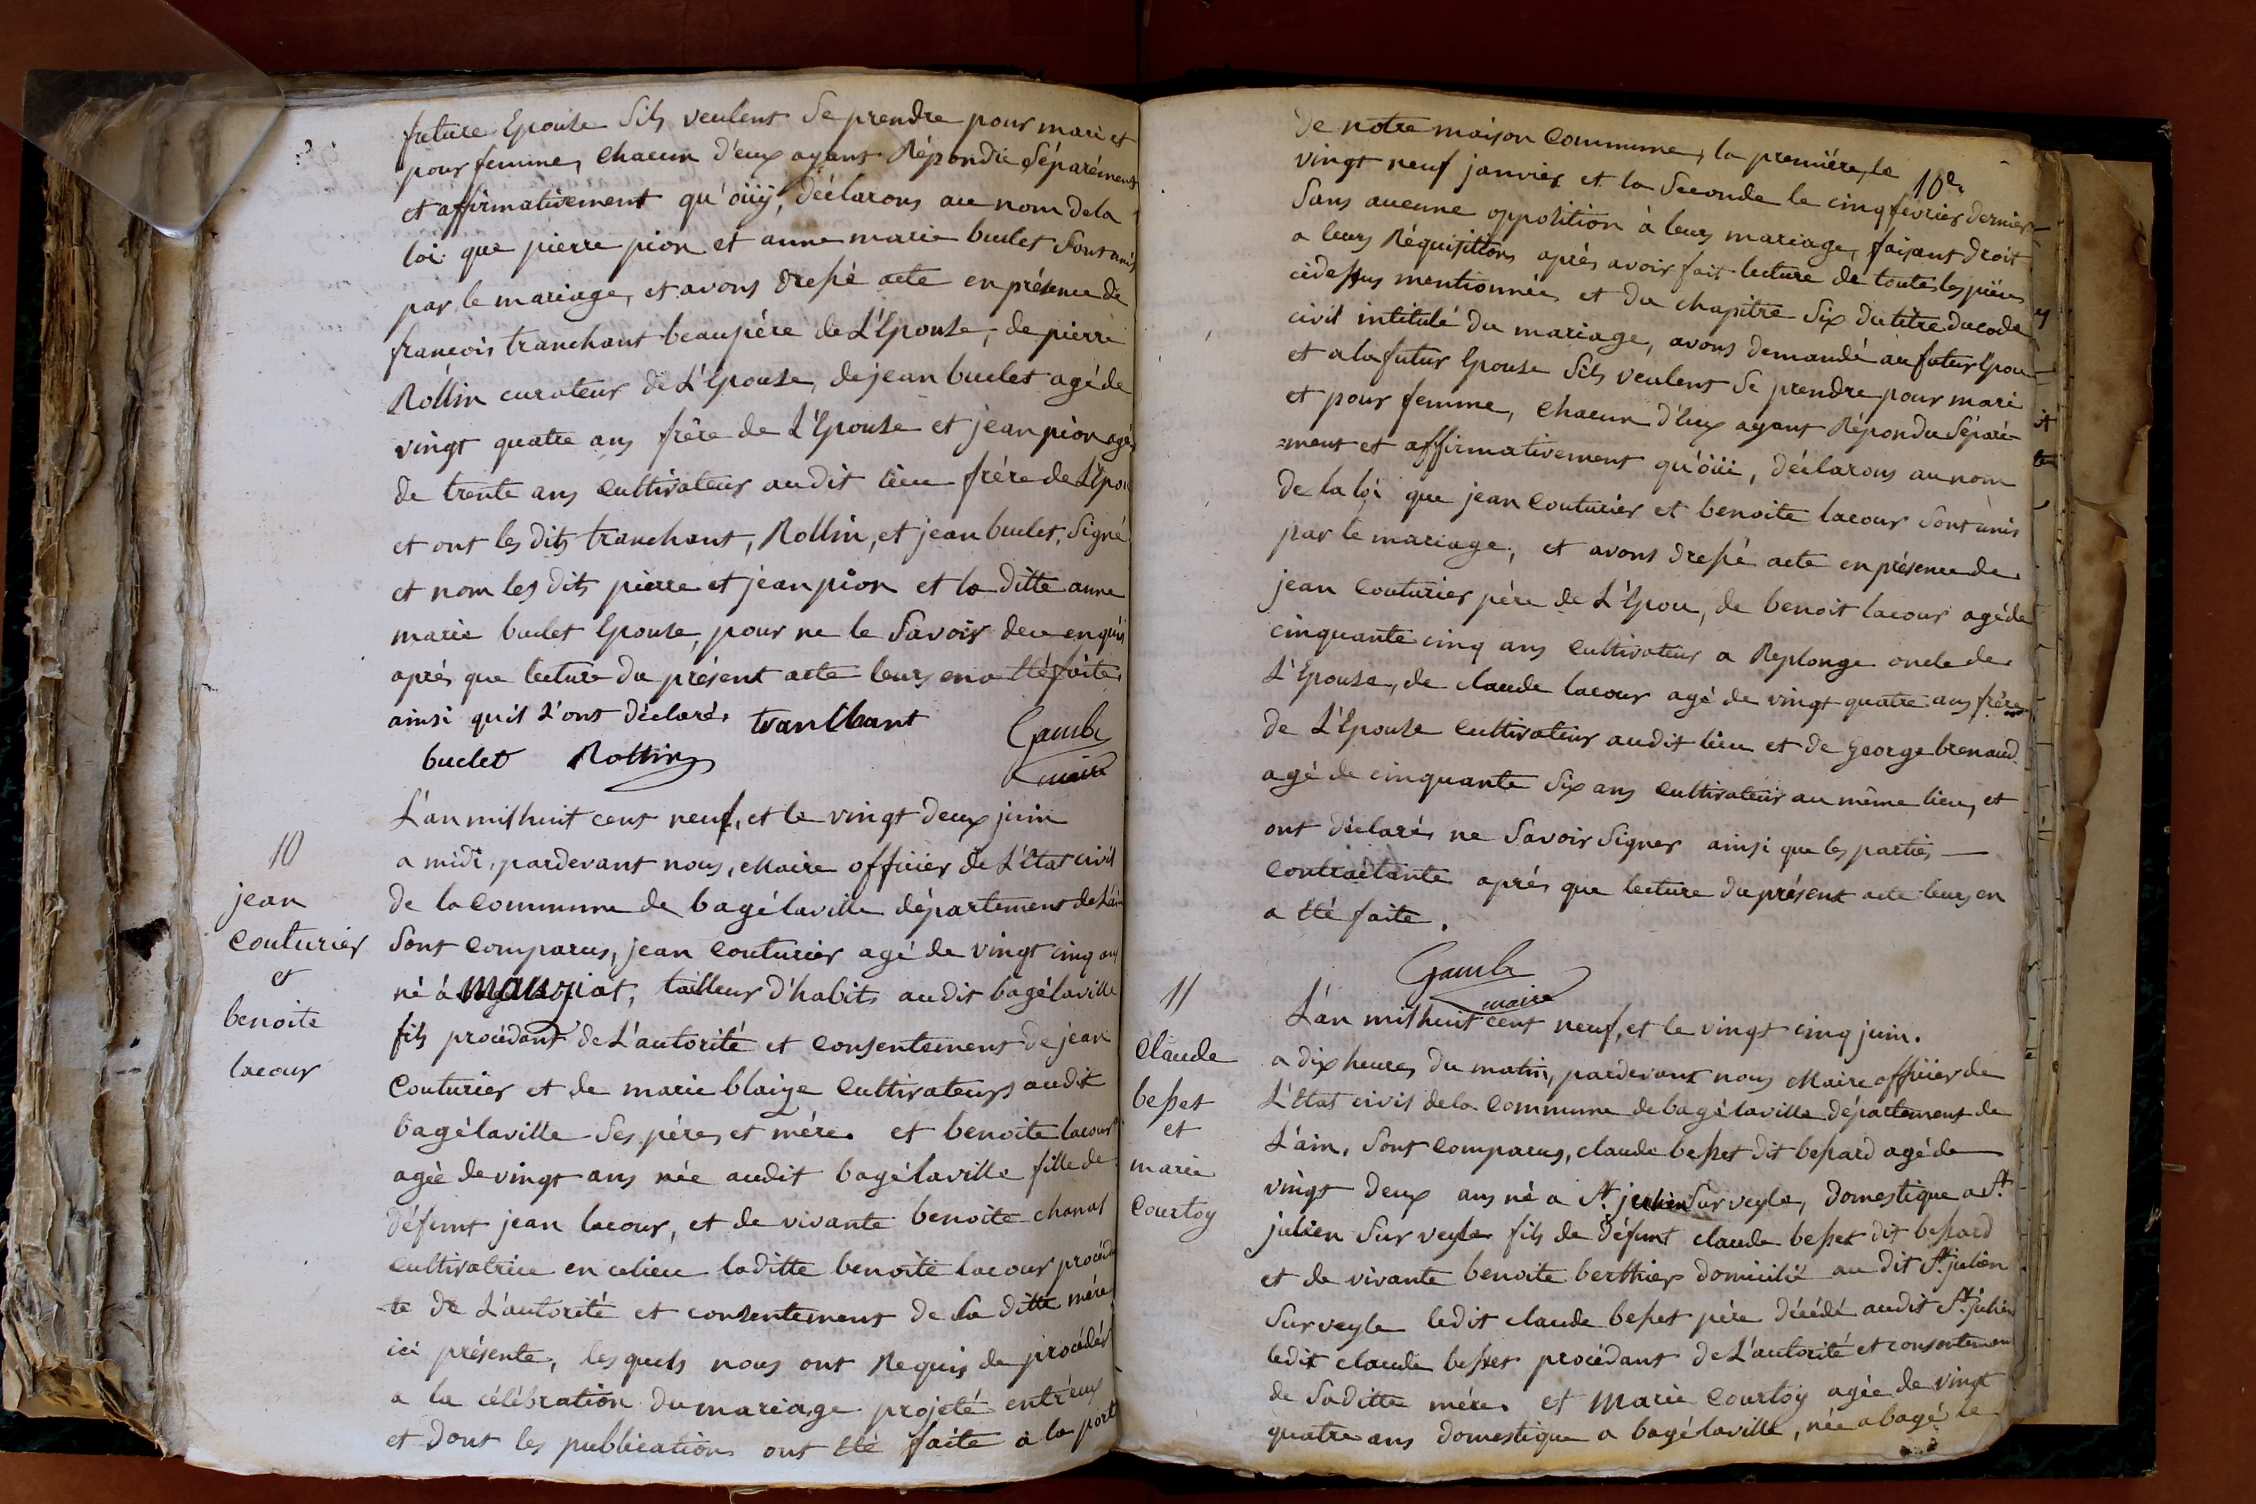 future Epouse Sils veulent Se prendre pour mari et
pour femme, Chacun d'eux ayant Répondu Séparément
et affirmativement qu'oüy, déclarons au nom dela
loi que pierre pion et anne marie buclet Sont unis
par le mariage, et avons dressé acte en présence de
francois tranchant beaupére de L'Epouse, de pierre
Rollin curateur de L'Epouse, de jean buclet agé de
vingt quatre ans frère de L'Epouse et jean pion agé
de trente ans Cultivateur audit lieu frére de L'Epou
et ont les dits tranchant, Rollin, et jean buclet, Signé
et nom les dits pierre et jean pion et la ditte anne
marie buclet Epouse, pour ne le Savoir dece enquis
aprés que lecture du présent acte leurs en a Eté faite,
ainsi quil L'ont déclaré. tranChant
buclet Rollin Gambe
maire
L'an mil huit cent neuf, et le vingt deux juin
10
a midi, pardevant nous, Maire officier de L'Etat civil
jean
de la Commune de bagélaville département de L'ain
Couturier
Sont Comparus, jean Couturier agé de vingt cinq ans
et
né à manziat, tailleur d'habits audit bagélaville
benoite
fils procédant de L'autorité et Consentement de jean
lacour
Couturier et de marie blaize Cultivateurs audit
bagélaville Ses pére et mére. et benoite lacour
agée de vingt ans née audit bagélaville fille de
défunt jean lacour, et de vivante benoite chanal
Cultivatrice en celieu laditte benoite lacour procédan
-te de L'autorité et consentement de Sa ditte mére
ici présente, les quels nous ont Requis de procéder
a la célébration du mariage projeté entr'eux
et dont les publications ont Eté faite à la porte
10e.
de notre maison Commune, la premiére, le
vingt neuf janvier et la Seconde le cinq fevrier dernier
Sans aucune opposition à leurs mariage, faisant droit
a leurs Réquisitions aprés avoir fait lecture de toutes les piéces
cidessus mentionnées et du chapitre Six du titre du code
civil intitulé du mariage, avons demandé au futur Epou
et a la futur Epouse Sils veulent Se prendre pour mari
et pour femme, Chacun d'Eux ayant Répondu Séparé
=ment et affirmativement qu'oüi, déclarons au nom
de la loi que jean Couturier et benoite lacour Sont unis
par le mariage, et avons dressé acte en présence de
jean Couturier pére de L'Epou, de benoit lacour agé de
cinquante cinq ans Cultivateur a Replonge oncle de
L'Epouse, de claude lacour agé de vingt quatre ans frére
de L'Epouse Cultivateur audit lieu et de George brenaud
agé de cinquante Six ans Cultivateur au même lieu, et
ont déclaré ne Savoir Signer ainsi que les parties
Contractante aprés que lecture du présent acte leurs en
a Eté faite.
Gambe
maire
11
L'an mil huit cent neuf, et le vingt cinq juin.
Claude
a dix heures du matin, pardevant nous Maire officier de
besset
L'Etat civil dela Commune de bagélaville département de
et
L'ain, Sont Comparus, claude besset dit bessard agé de
marie
vingt deux ans né a St. julien Sur veyle, domestique a St.
Courtoy
julien Sur veyle fils de défunt claude besset dit bessard
et de vivante benoite berthier domicilié au dit St. julien
Sur veyle ledit claude besset pére décédé audit St. julien
ledit claude besset procédant de L'autorité et consentement
de Saditte mére. et Marie Courtoy agée de vingt
quatre ans domestique a bagélaville, née a bagé le